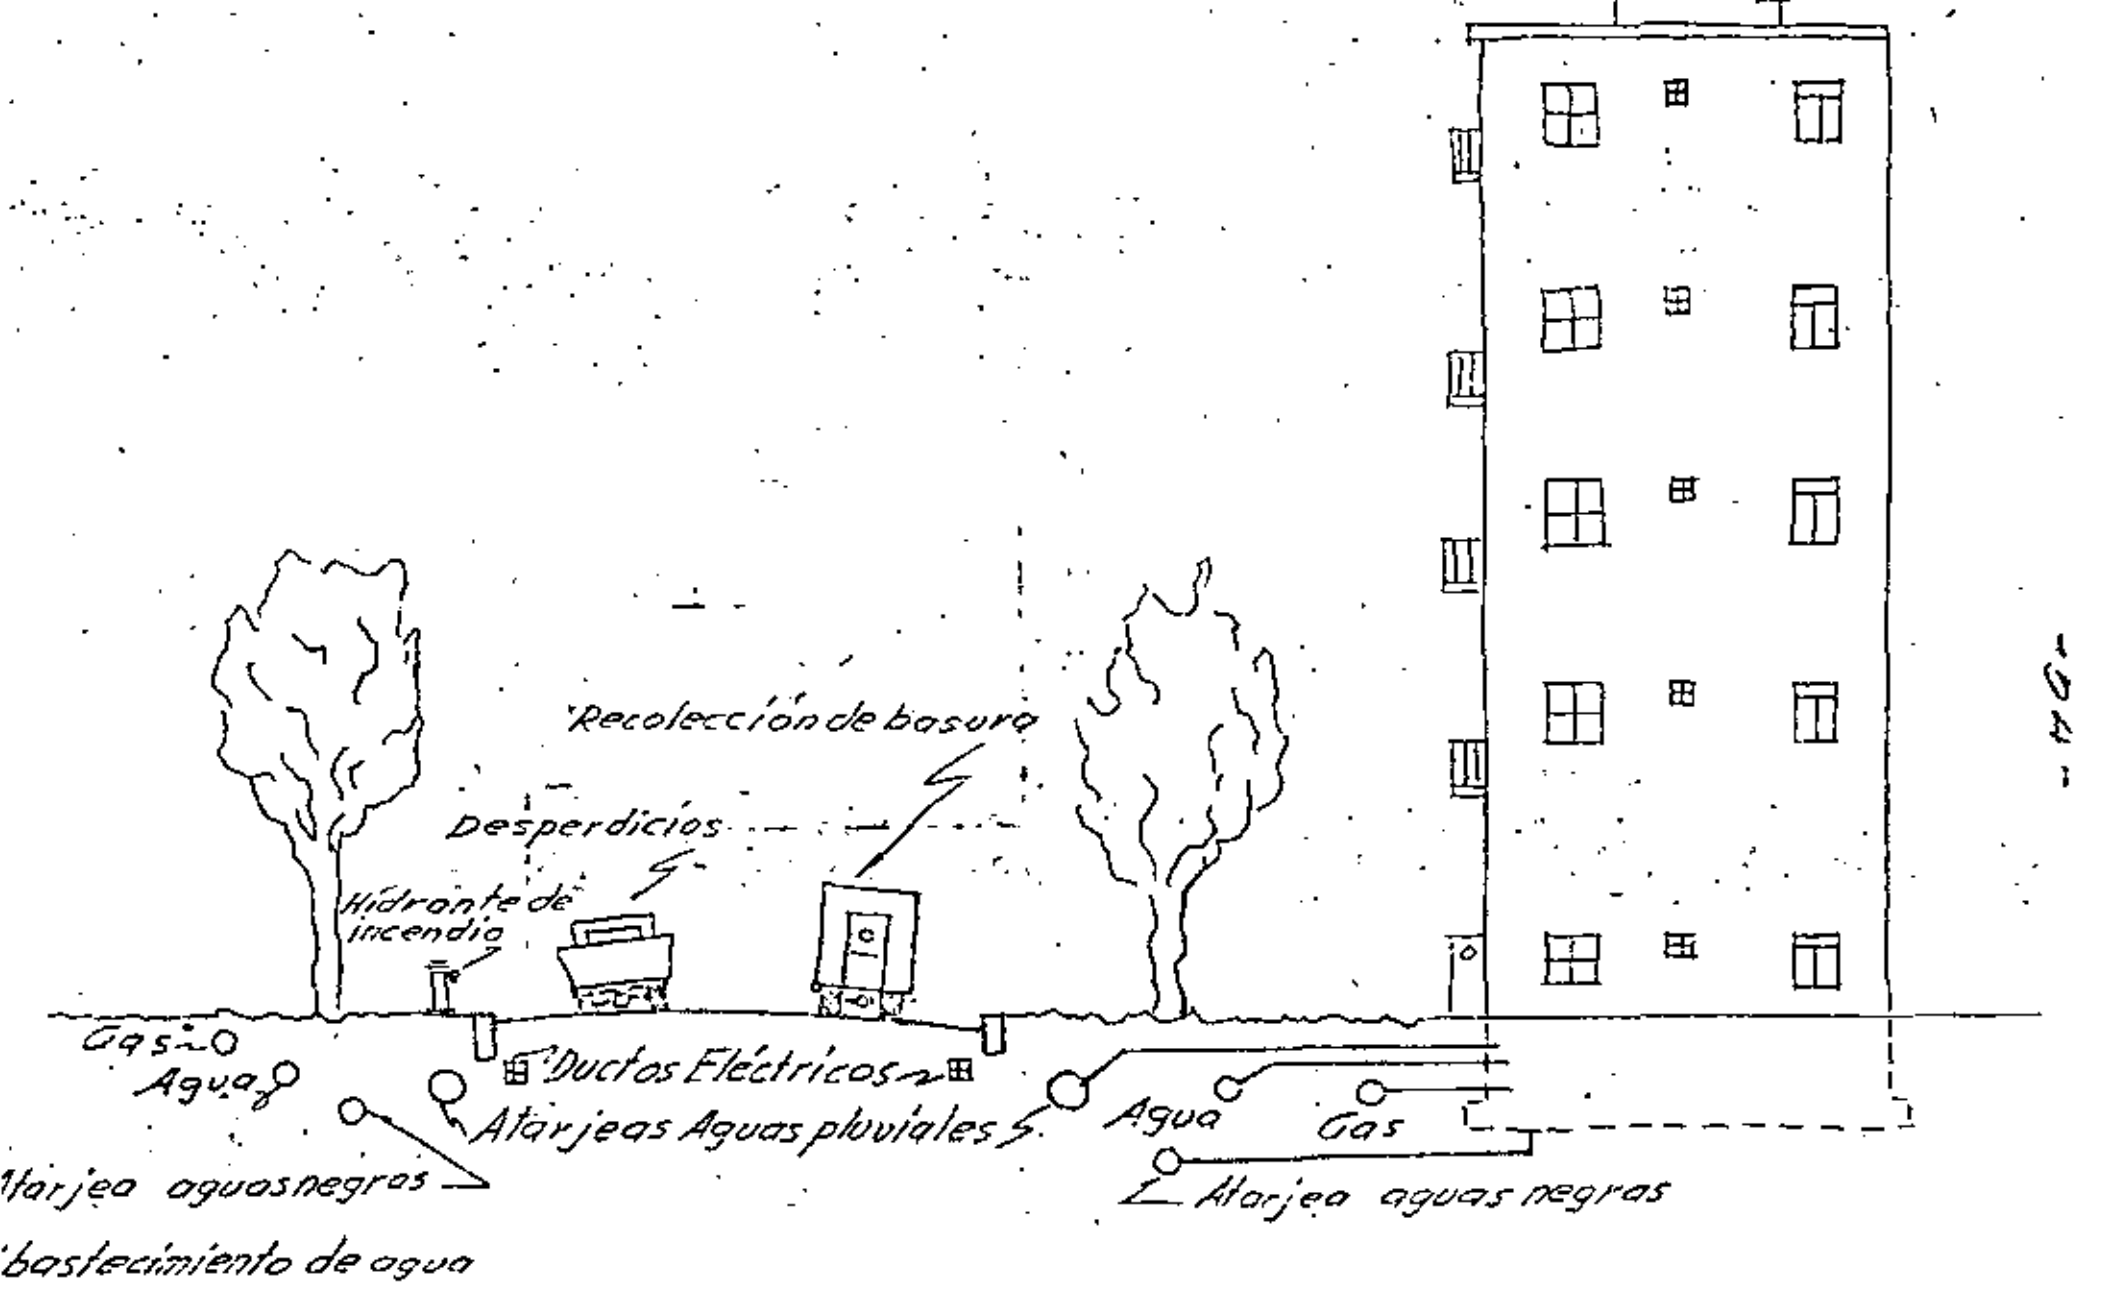 Recolección de basura
Desperdicios
Hidrante de
incendio
Gas
Agua
Ductos Eléctricos
Atarjeas Aguas pluviales
Agua
Gas
Atarjea aguas negras
Atarjea aguas negras
bastecimiento de agua